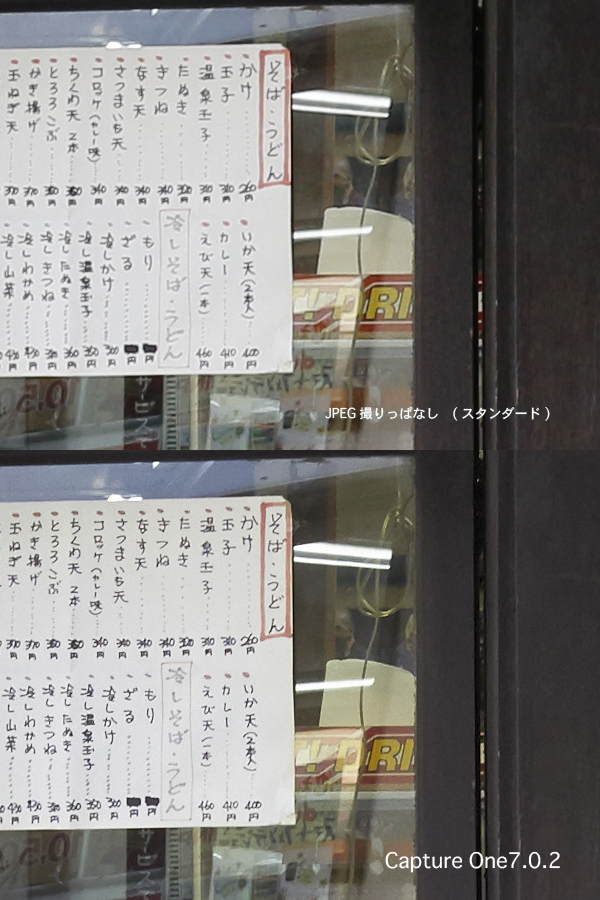 そば・うどん
かけ 260円
玉子 310円
温泉玉子 310円
たぬき 320円
きつね 340円
なす天 340円
さつまいも天 340円
コロッケ(カレー味) 340円
ちくわ天 2本 円
とろろこぶ 円
かき揚げ 370円
玉ねぎ天 370円
いか天(2本入) 400円
カレー 410円
えび天(一本) 460円
冷しそば・うどん
もり 円
ざる 円
冷しかけ 300円
冷し温泉玉子 350円
冷したぬき 360円
冷しきつね 380円
冷しわかめ 円
冷し山菜 円
サービス
JPEG 撮りっぱなし （スタンダード）
そば・うどん
かけ 260円
玉子 310円
温泉玉子 310円
たぬき 320円
きつね 340円
なす天 340円
さつまいも天 340円
コロッケ(カレー味) 340円
ちくわ天 2本 円
とろろこぶ 円
かき揚げ 370円
玉ねぎ天 370円
いか天(2本入) 400円
カレー 410円
えび天(一本) 460円
冷しそば・うどん
もり 円
ざる 円
冷しかけ 300円
冷し温泉玉子 350円
冷したぬき 360円
冷しきつね 380円
冷しわかめ 円
冷し山菜 円
サービス
Capture One7.0.2